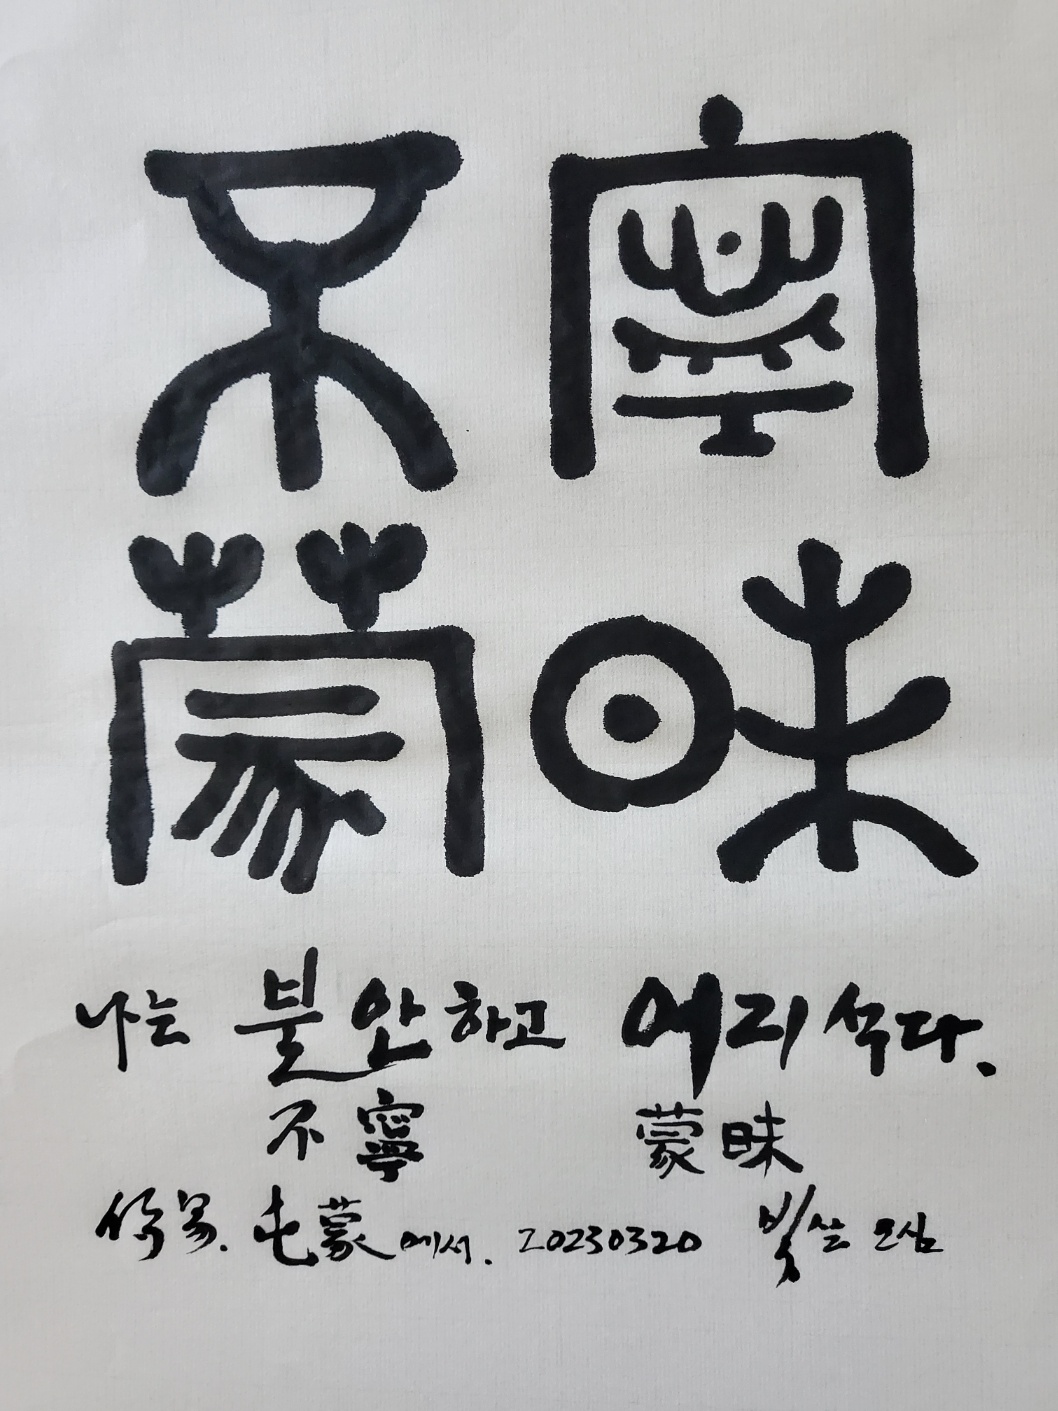 不寧
蒙昧
나는 불안하고 어리석다.
不寧 蒙昧
屯蒙에서. 20230320 붓쓴 모심